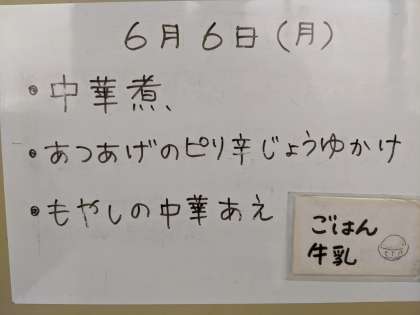 6月6日(月)
・中華煮、
・あつあげのピリ辛じょうゆかけ
・もやしの中華あえ
ごはん
牛乳